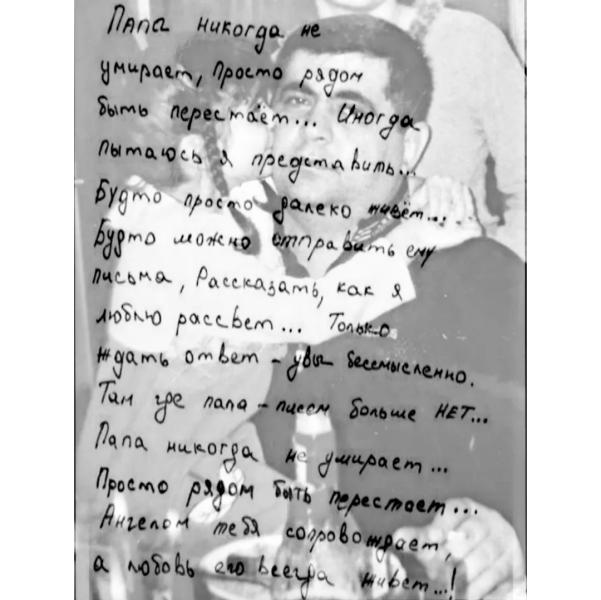 Папа никогда не
умирает, просто рядом
быть перестаёт... Иногда
пытаюсь я представить...
Будто просто далеко живёт...
Будто можно отправить ему
письма, Рассказать, как я
люблю рассвет... Только
ждать ответ - увы бессмысленно.
Там где папа - писем больше НЕТ...
Папа никогда не умирает...
Просто рядом быть перестает...
Ангелом тебя сопровождает,
а любовь его всегда живет...!